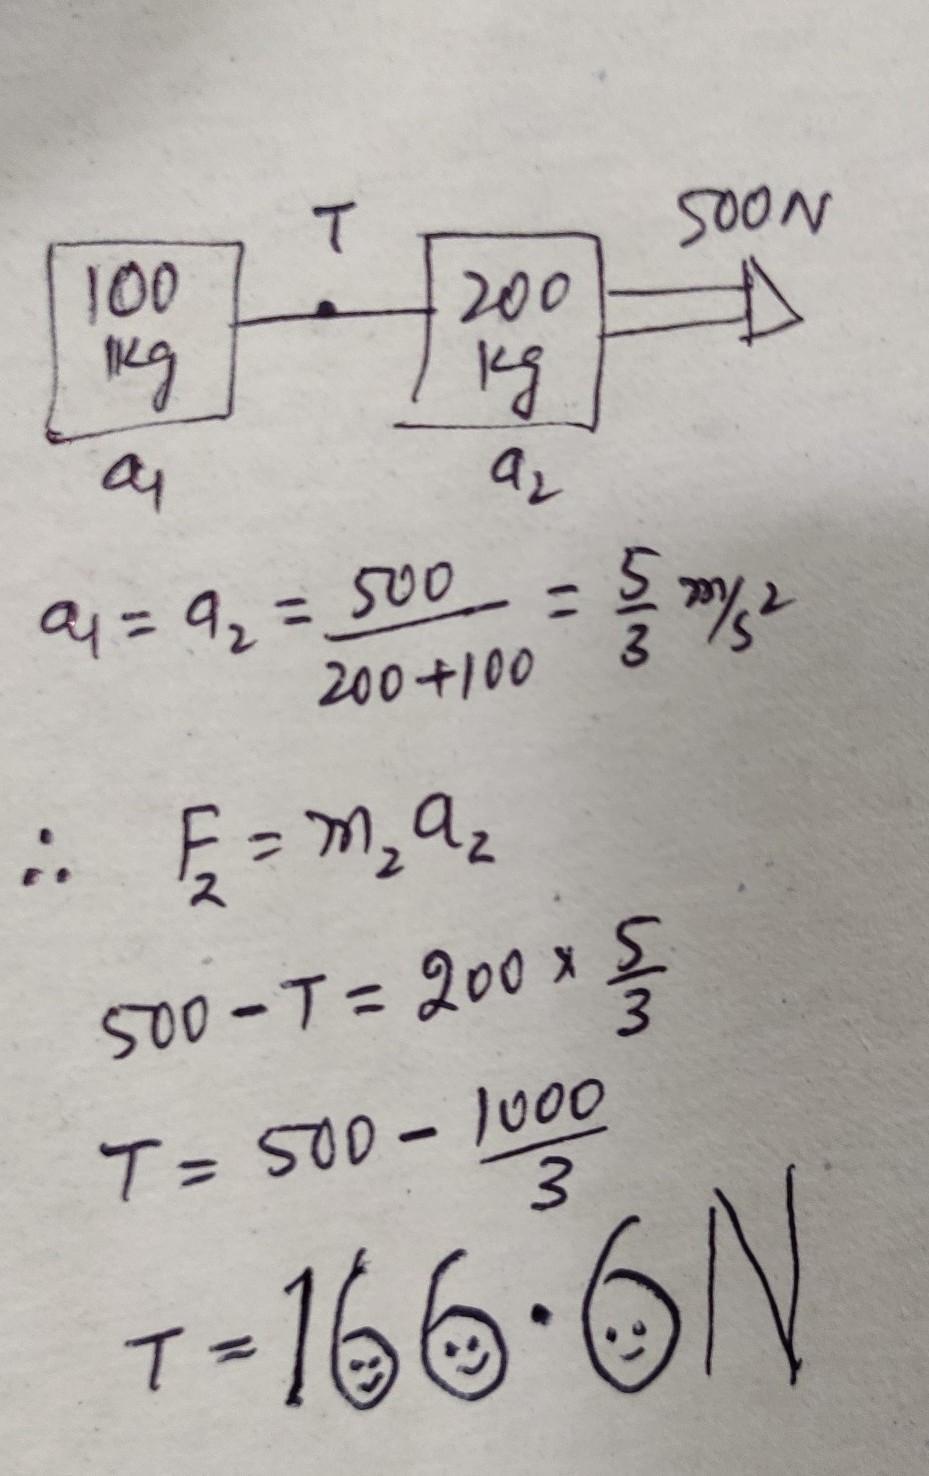 T 500N
100 200
kg kg
a₁ a₂
a₁ = a₂ = 500/(200+100) = 5/3 m/s²
∴ F₂ = m₂a₂
500 - T = 200 × 5/3
T = 500 - 1000/3
T = 166.6N